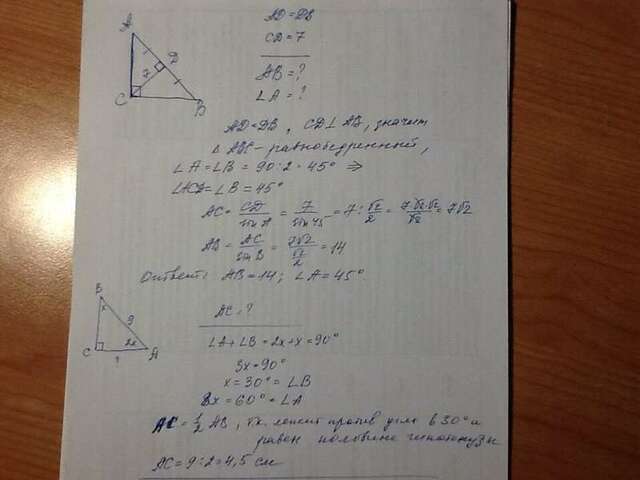 A
D
7
C
B
AD = DB
CD = 7
AB = ?
∠A = ?
AD = DB, CD ⊥ AB, значит
△ ABC - равнобедренный,
∠A = ∠B = 90 : 2 = 45° ⇒
∠ACD = ∠B = 45°
AC = CD/sin A = 7/sin 45 = 7 : √2/2 = 7√2·√2/√2 = 7√2
AB = AC/sin B = 7√2/(√2/2) = 14
Ответ: AB = 14; ∠A = 45°.
B
x
9
2x
C
?
A
AC = ?
∠A + ∠B = 2x + x = 90°
3x = 90°
x = 30° = ∠B
2x = 60° = ∠A
AC = 1/2 AB, т.к. лежит против угла в 30° и
равен половине гипотенузы
AC = 9 : 2 = 4,5 см